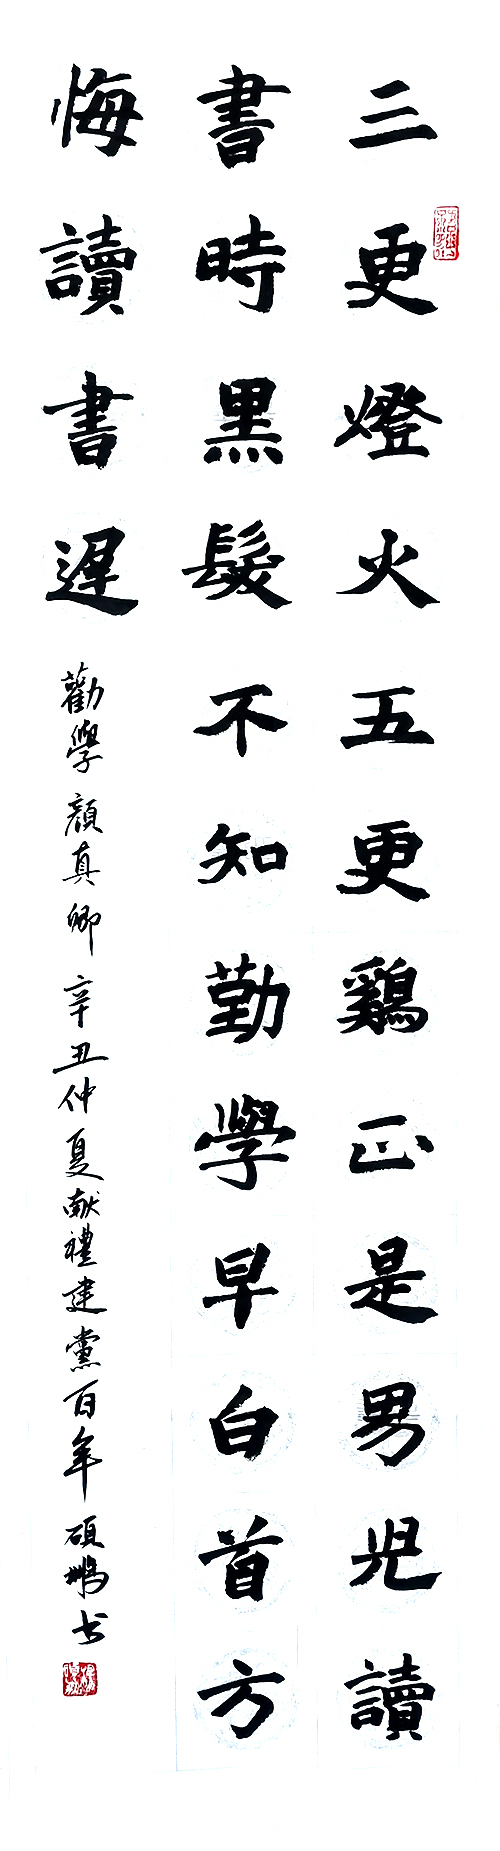 三更燈火五更鷄正是男児讀
書時黑髮不知勤學早白首方
悔讀書遲
勸學顔真卿辛丑仲夏献禮建黨百年碩鵬书